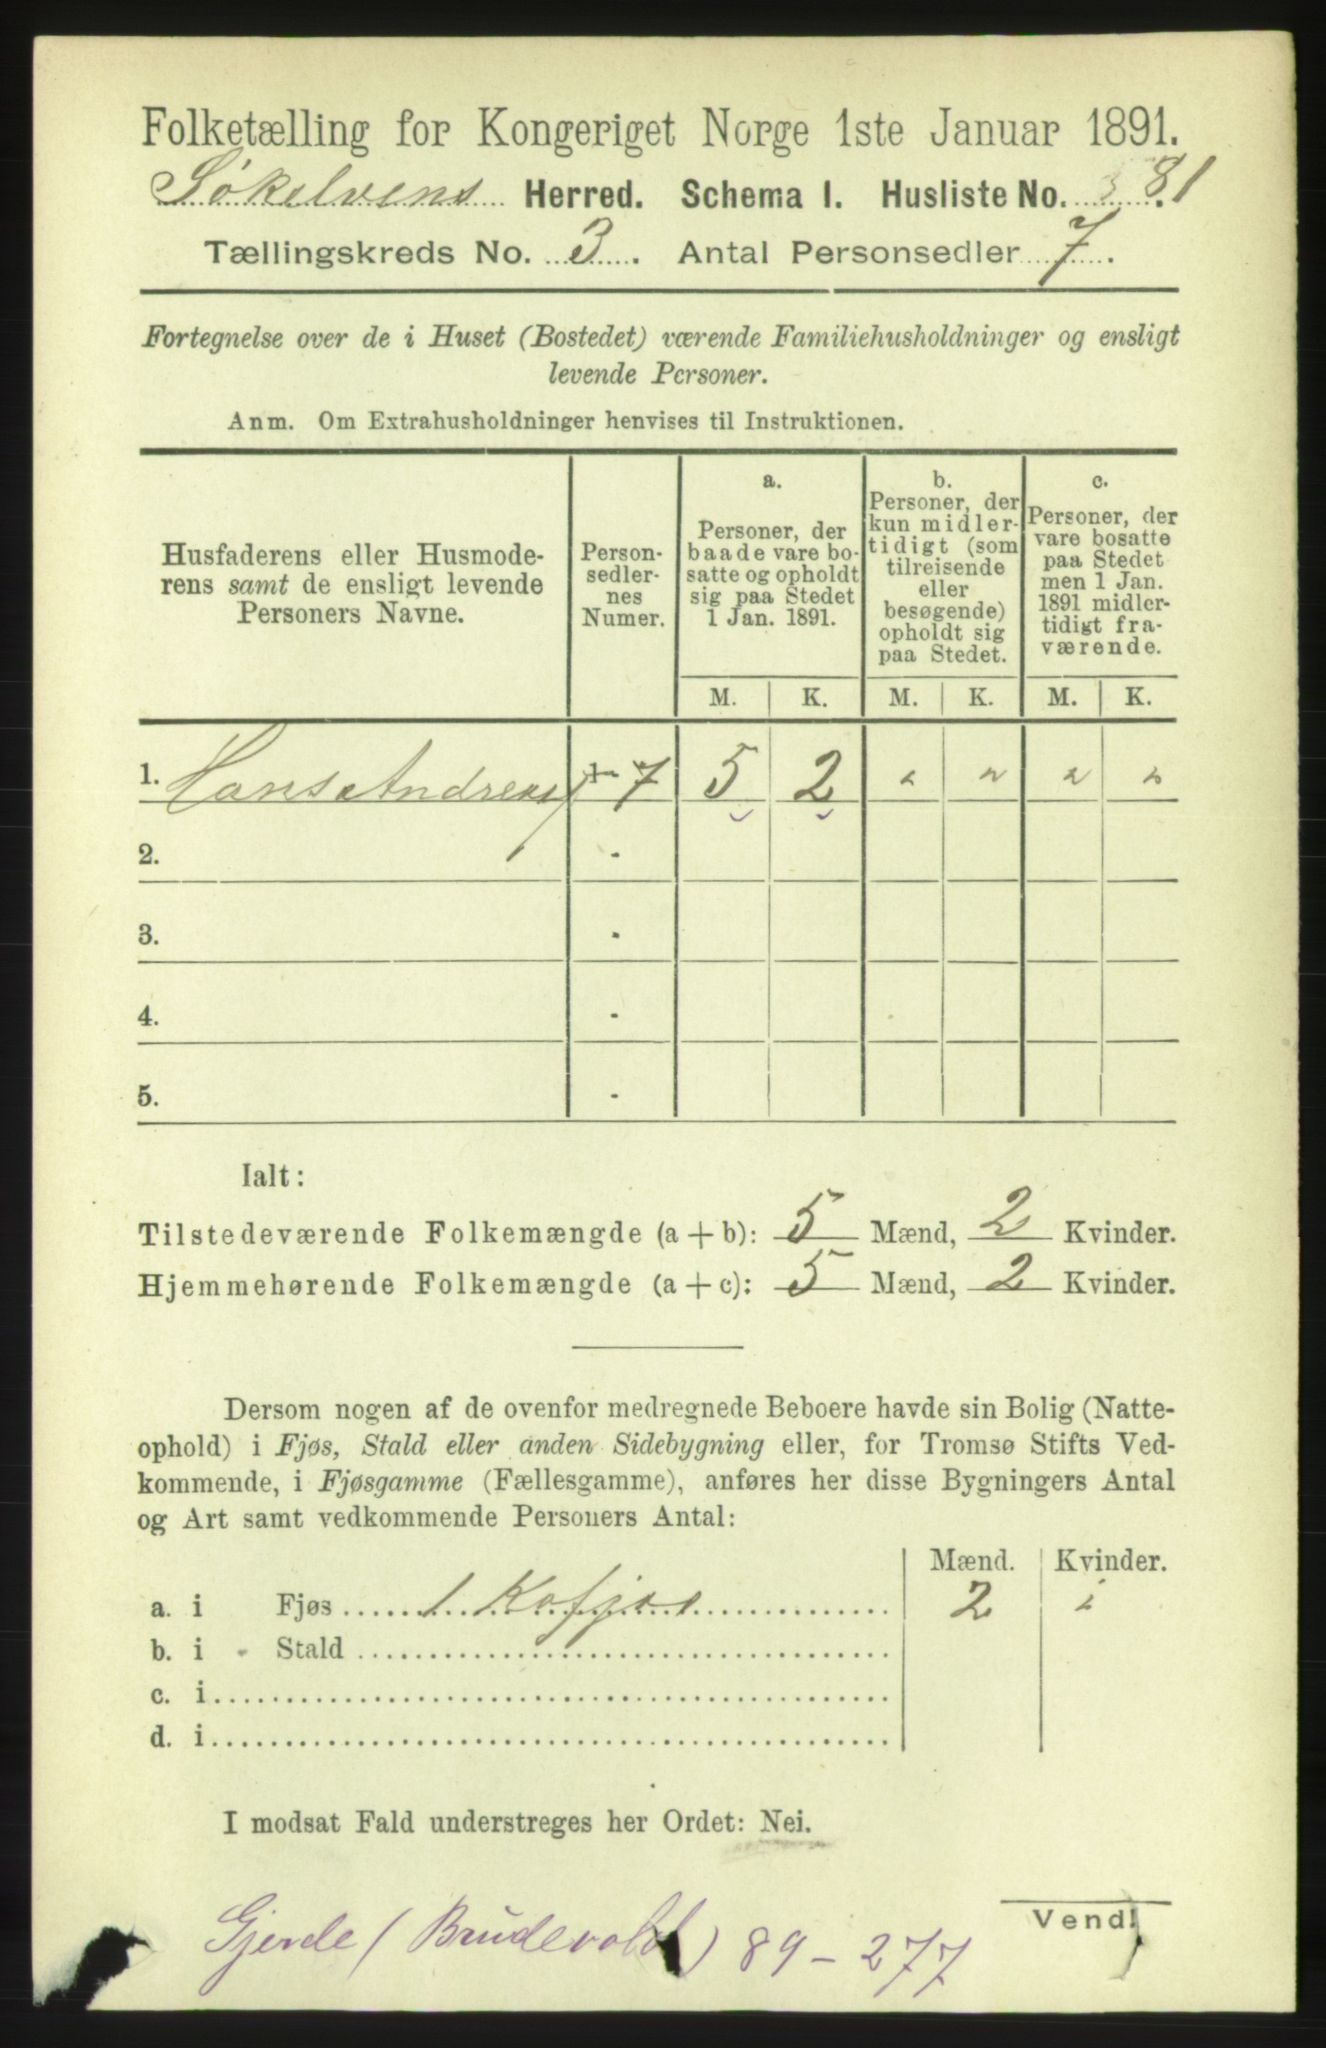 Folketælling for Kongeriget Norge 1ste Januar 1891.
Søkelvens Herred. Schema I. Husliste No. 81
Tællingskreds No. 3. Antal Personsedler 7.
Fortegnelse over de i Huset (Bostedet) værende Familiehusholdninger og ensligt
levende Personer.
Anm. Om Extrahusholdninger henvises til Instruktionen.
Husfaderens eller Husmode-
rens samt de ensligt levende
Personers Navne.
Person-
sedler-
nes
Numer.
a.
Personer, der
baade vare bo-
satte og opholdt
sig paa Stedet
1 Jan. 1891.
b.
Personer, der
kun midler-
tidigt (som
tilreisende
eller
besøgende)
opholdt sig
paa Stedet.
c.
Personer, der
vare bosatte
paa Stedet
men 1 Jan.
1891 midler-
tidigt fra-
værende.
M. K. M. K. M. K.
1. Hans Andreas 1-7 5 2 " " " "
2. -
3. -
4. -
5. -
Ialt:
Tilstedeværende Folkemængde (a+b): 5 Mænd, 2 Kvinder.
Hjemmehørende Folkemængde (a+c): 5 Mænd, 2 Kvinder.
Dersom nogen af de ovenfor medregnede Beboere havde sin Bolig (Natte-
ophold) i Fjøs, Stald eller anden Sidebygning eller, for Tromsø Stifts Ved-
kommende, i Fjøsgamme (Fællesgamme), anføres her disse Bygningers Antal
og Art samt vedkommende Personers Antal:
Mænd. Kvinder.
a. i Fjøs 1 Kofjøs 2 "
b. i - Stald
c. i
d. i
I modsat Fald understreges her Ordet: Nei.
Vend!
Gjerde (Brudevold) 89-277